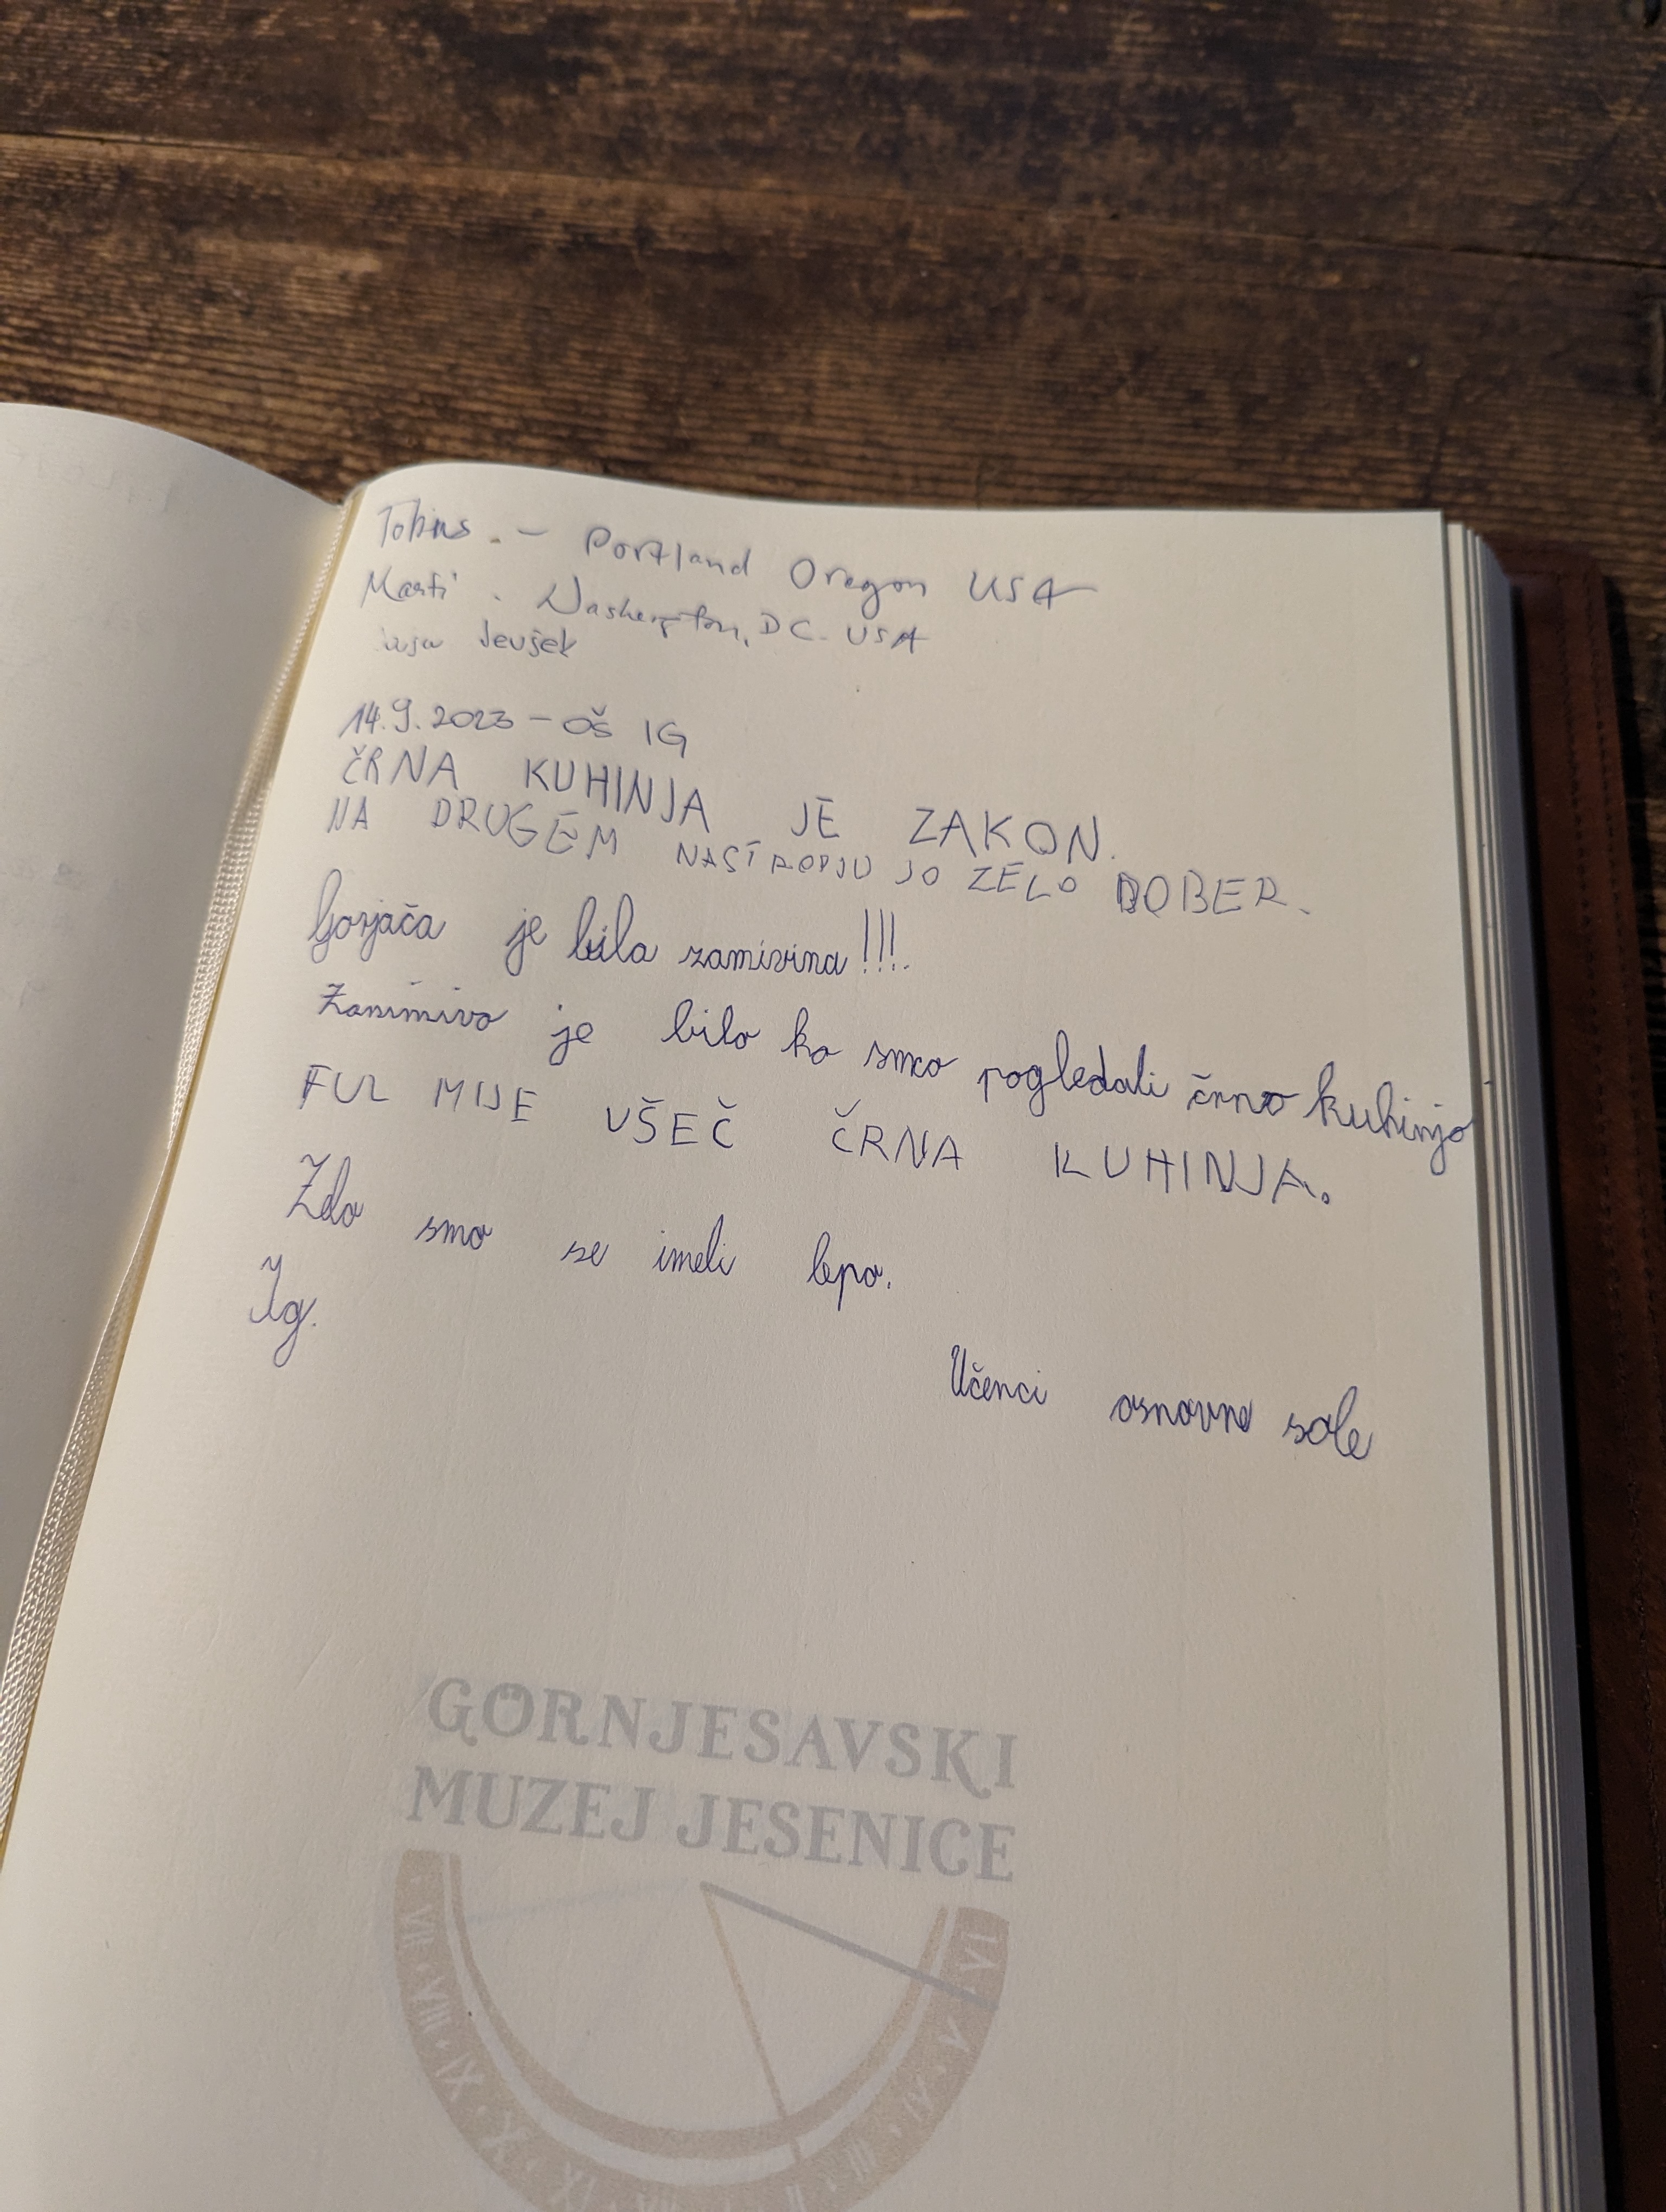 Tobias. - Portland Oregon USA
Marti. Washington, DC. USA
Jevšek
14.9.2023 - OŠ IG
ČRNA KUHINJA JE ZAKON.
NA DRUGEM NASTROPJU JO ZELO DOBER.
Gorjača je bila zamivina!!!.
Zanimivo je bilo ko smo pogledali črno kuhinjo
FUL MIJE VŠEČ ČRNA KUHINJA.
Zelo smo se imeli lepo.
Ig.
Učenci osnovne sole
GORNJESAVSKI
MUZEJ JESENICE